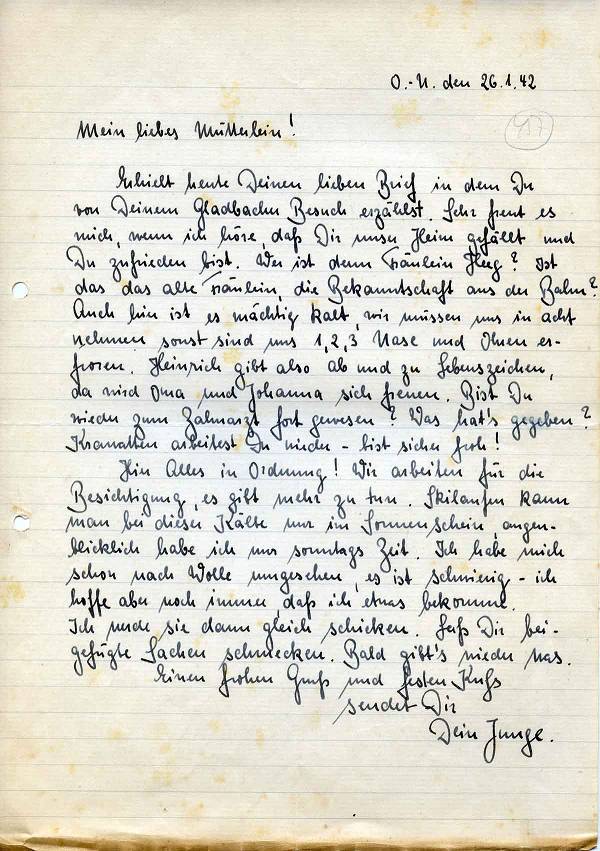 O.-U. den 26.1.42
417
Mein liebes Mütterlein!
Erhielt heute Deinen lieben Brief in dem Du
von Deinem Gladbacher Besuch erzählst. Sehr freut es
mich, wenn ich höre, daß Dir unser Heim gefällt und
Du zufrieden bist. Wer ist denn Fräulein Heeg? Ist
das das alte Fräulein, die Bekanntschaft aus der Bahn?
Auch hier ist es mächtig kalt, wir müssen uns in acht
nehmen sonst sind uns 1, 2, 3 Nase und Ohren er-
froren. Heinrich gibt also ab und zu Lebenszeichen,
da wird Oma und Johanna sich freuen. Bist Du
wieder zum Zahnarzt fort gewesen? Was hat's gegeben?
Krawatten arbeitest Du wieder - bist sicher froh!
Hier Alles in Ordnung! Wir arbeiten für die
Besichtigung, es gibt mehr zu tun. Skilaufen kann
man bei dieser Kälte nur im Sonnenschein, augen-
blicklich habe ich nur sonntags Zeit. Ich habe mich
schon nach Wolle umgesehen, es ist schwierig - ich
hoffe aber noch immer, daß ich etwas bekomme.
Ich werde sie dann gleich schicken. Laß Dir bei-
gefügte Sachen schmecken. Bald gibt's wieder was.
Einen frohen Gruß und festen Kuß
sendet Dir
Dein Junge.